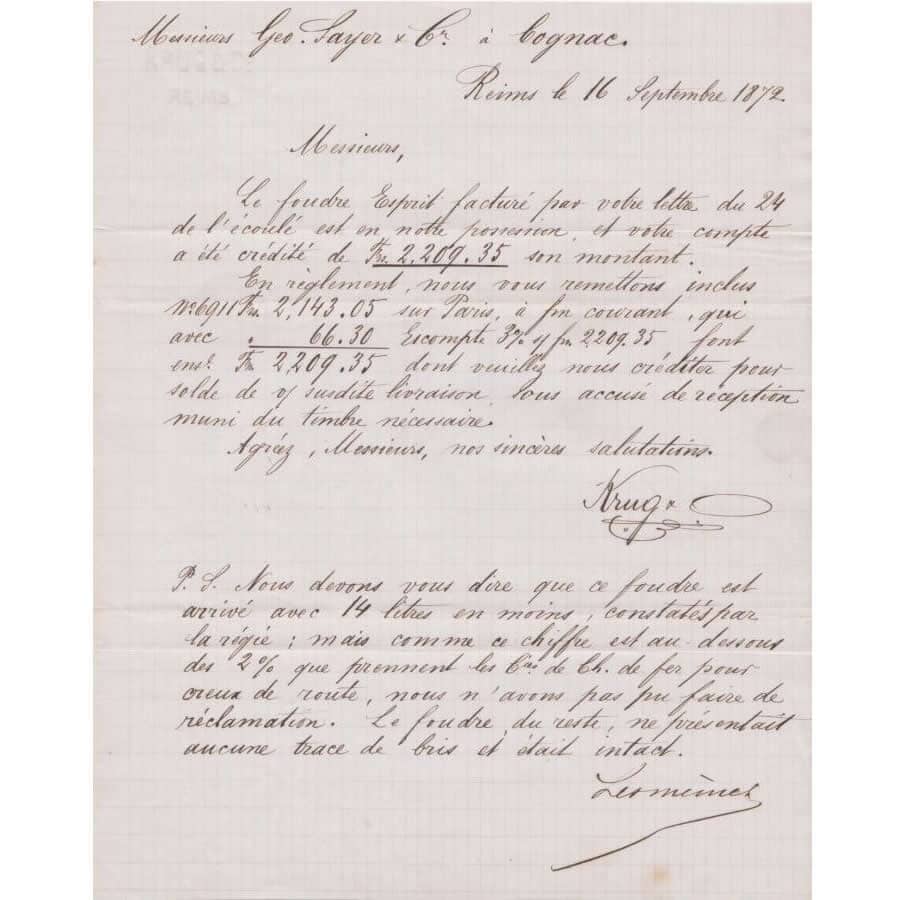 Messieurs Geo. Sayer & Cie. à Cognac.
Reims le 16 Septembre 1872
Messieurs,
Le foudre Esprit facturé par votre lettre du 24
de l'écoulé est en notre possession, et votre compte
a été crédité de Frs. 2,209.35 son montant.
En règlement, nous vous remettons inclus
No. 6911 Frs. 2,143.05 sur Paris, à fin courant, qui
avec " 66.30 Escompte 3% s/ frs. 2209.35 font
ense. Frs 2,209.35 dont veuillez nous créditer pour
solde de v/ susdite livraison, sous accusé de réception
muni du timbre nécessaire.
Agréez, Messieurs, nos sincères salutations.
Krug &
P. S. Nous devons vous dire que ce foudre est
arrivé avec 14 litres en moins, constatés par
la régie; mais comme ce chiffre est au-dessous
des 2% que prennent les Cies de Ch. de fer pour
creux de route, nous n'avons pas pu faire de
réclamation. Le foudre, du reste, ne présentait
aucune trace de bris et était intact.
Les mêmes